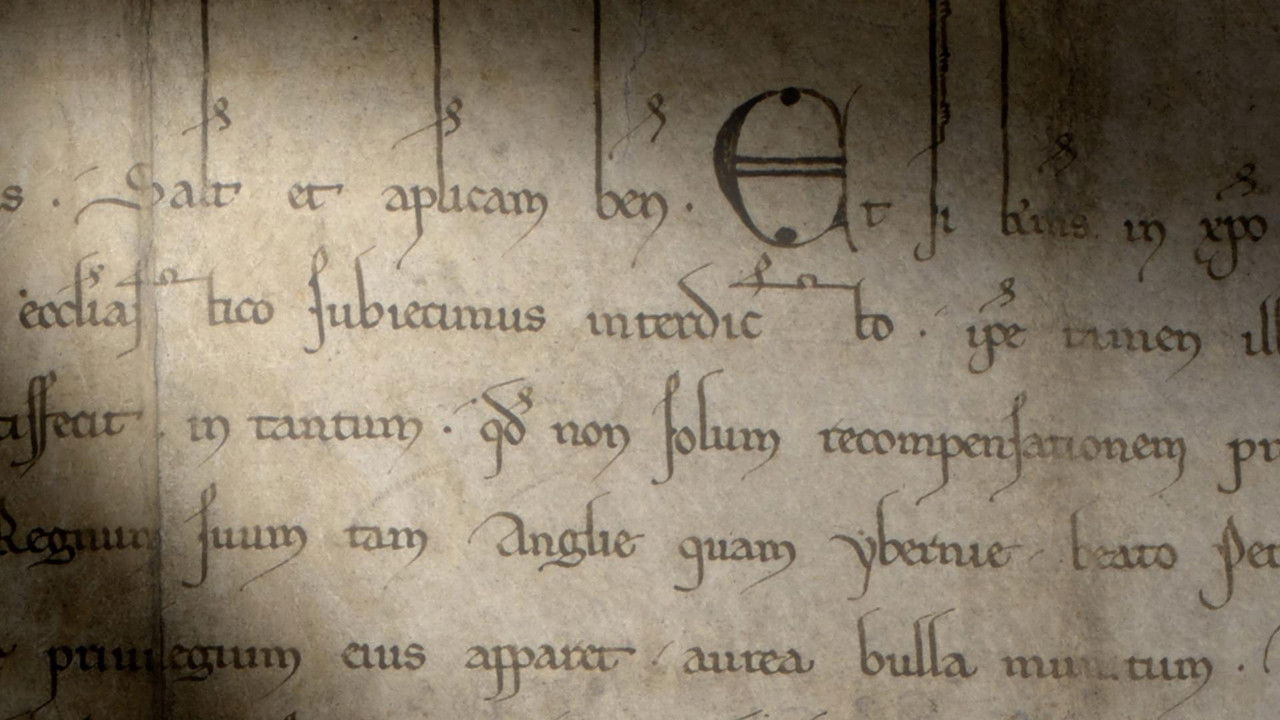 s . Salt et aplicam ben . Et si kmus in xpo
ecclias tico subiecimus interdic to . ipe tamen ill
tisfecit in tantum . qd non solum recompensationem pr
Regnum suum tam Anglie quam ybernie beato Pet
privilegium eius apparet aurea bulla munitum .